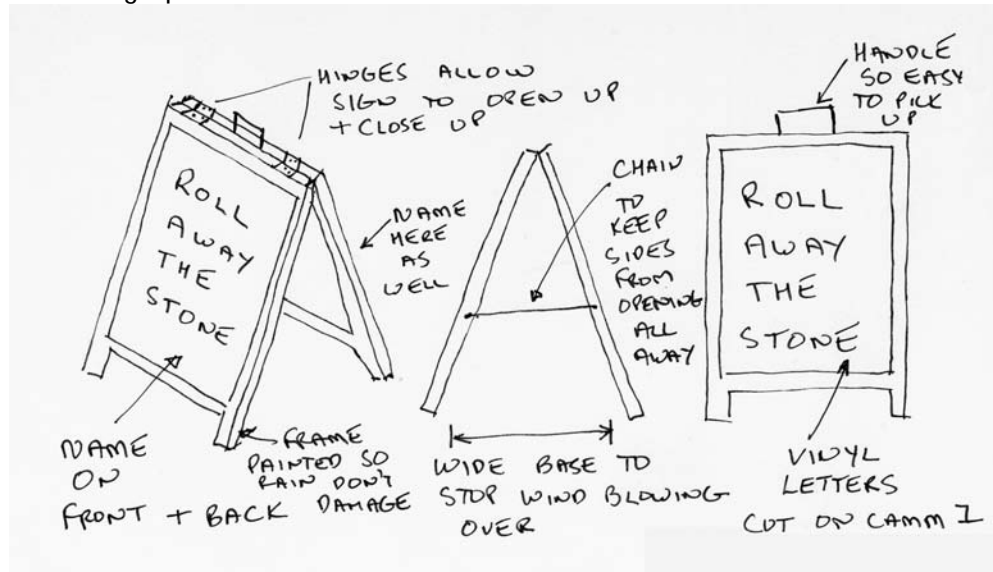 HINGES ALLOW
SIGN TO OPEN UP
+ CLOSE UP
ROLL
AWAY
THE
STONE
NAME
HERE
AS
WELL
NAME
ON
FRONT + BACK
FRAME
PAINTED SO
RAIN DON'T
DAMAGE
CHAIN
TO
KEEP
SIDES
FROM
OPENING
ALL
AWAY
WIDE BASE TO
STOP WIND BLOWING
OVER
HANDLE
SO EASY
TO PICK
UP
ROLL
AWAY
THE
STONE
VINYL
LETTERS
CUT ON CAMM 1